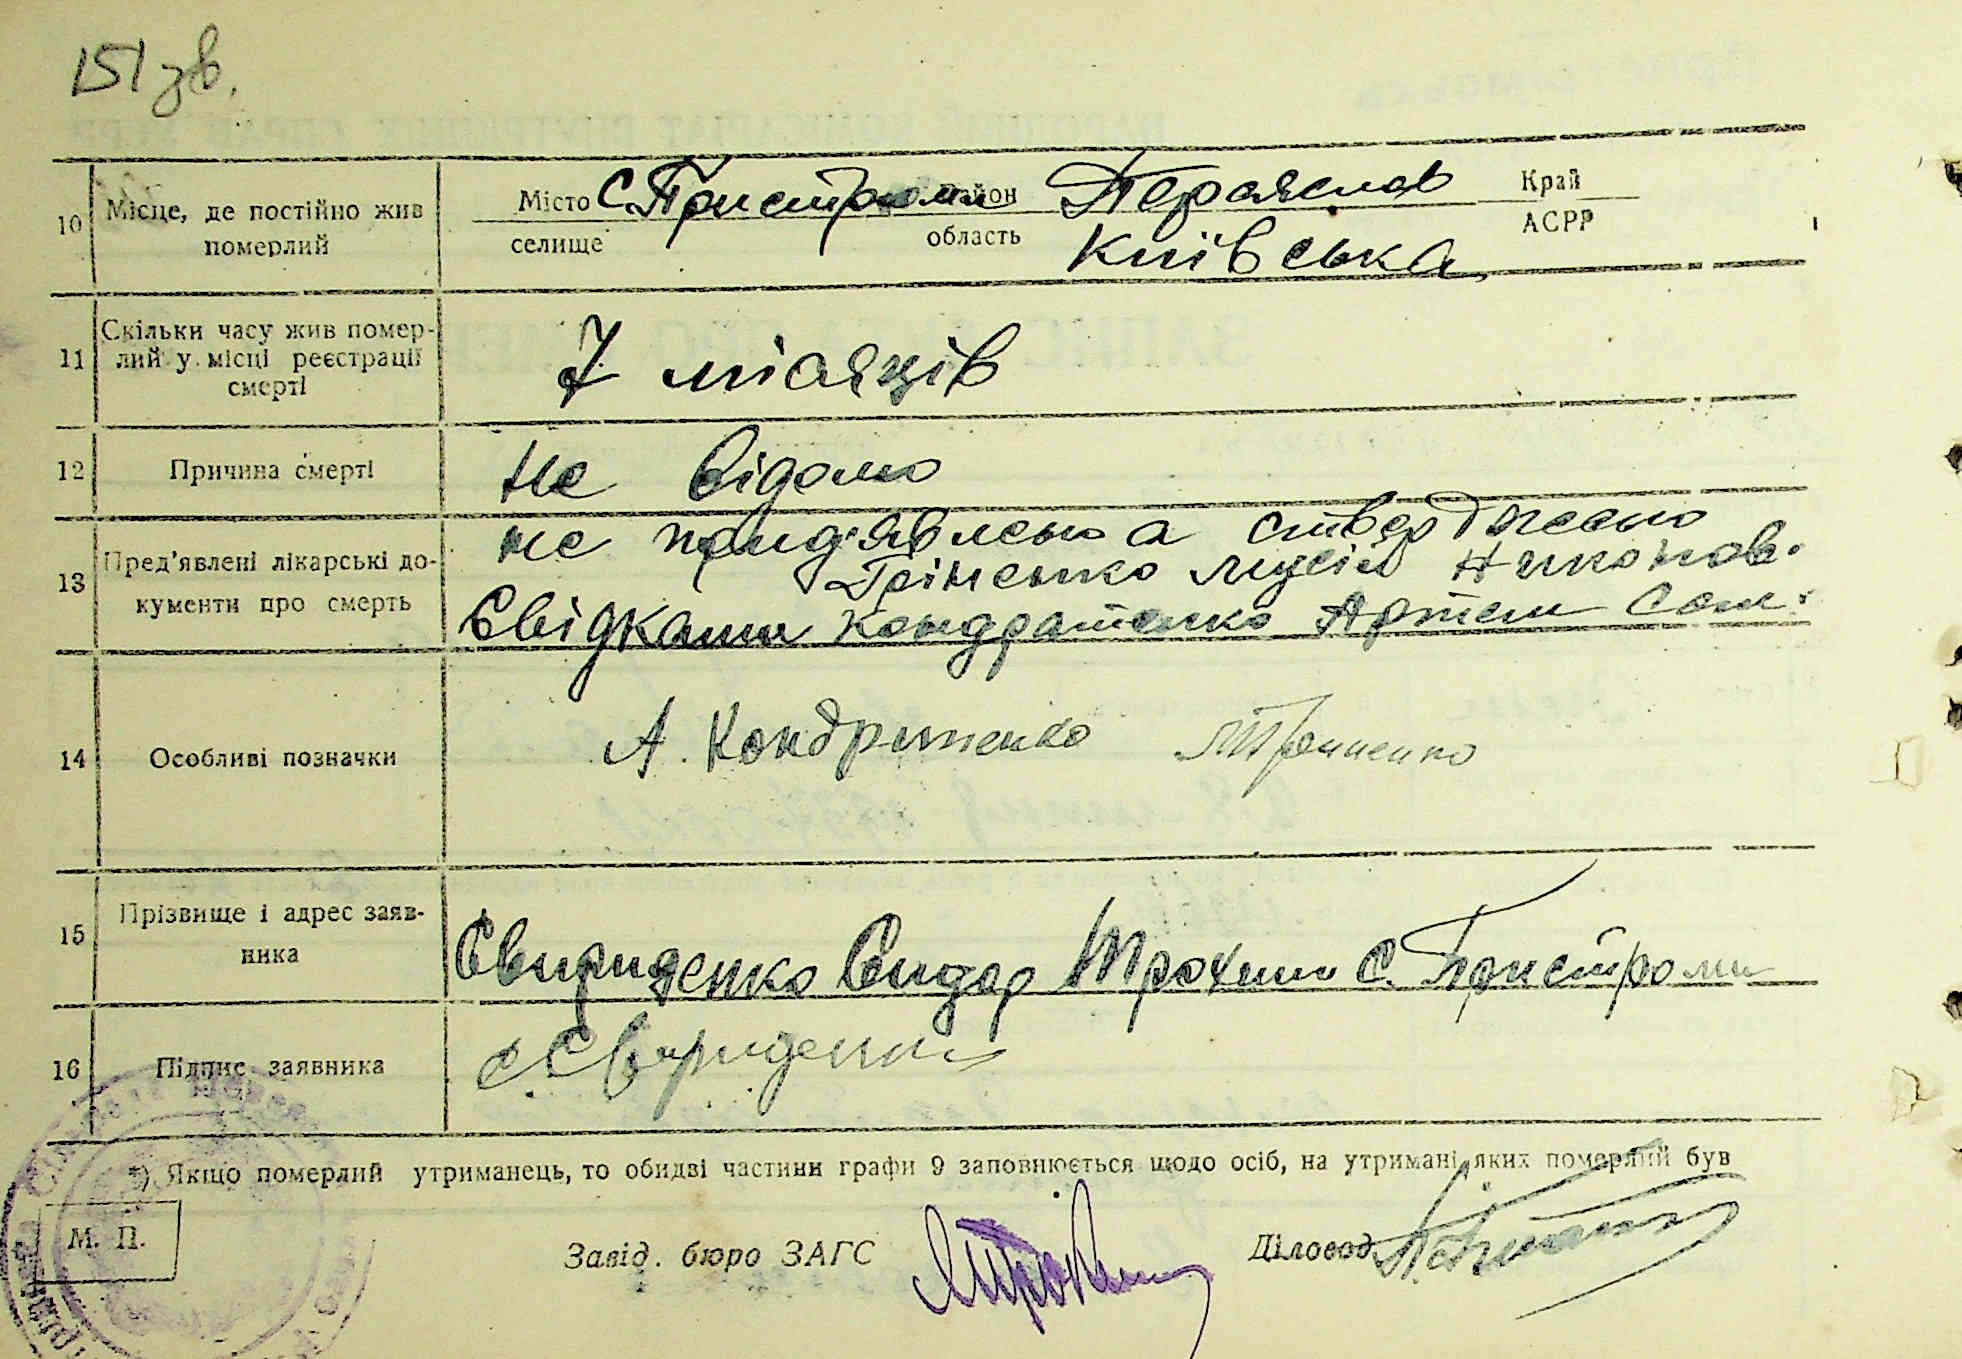 151 зв.
10 Місце, де постійно жив померлий
Місто С. Пристроми Район Переяслав Край
селище область Київська АСРР
11 Скільки часу жив помер-
лий у місці реєстрації
смерті
7 місяців
12 Причина смерті
не відомо
13 Пред'явлені лікарські до-
кументи про смерть
не пред'явлено а стверджено
Грінченко Мусій Никонов.
Свідками Кондратенко Артем Сам.
14 Особливі позначки
А. Кондратенко
15 Прізвище і адрес заяв-
ника
Свириденко Сидор Трохим С. Пристроми
16 Підпис заявника
С. Свириденко
*) Якщо померлий утриманець, то обидві частини графи 9 заповнюється щодо осіб, на утримані яких померлий був
М. П.
Завід. бюро ЗАГС
Діловод